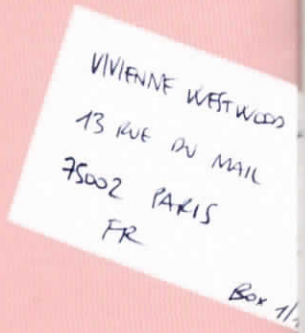 VIVIENNE WESTWOOD
13 RUE DU MAIL
75002 PARIS
FR
Box 1/